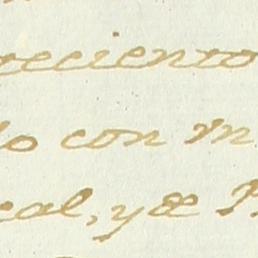 reciento
lo con m
cal, yæ P